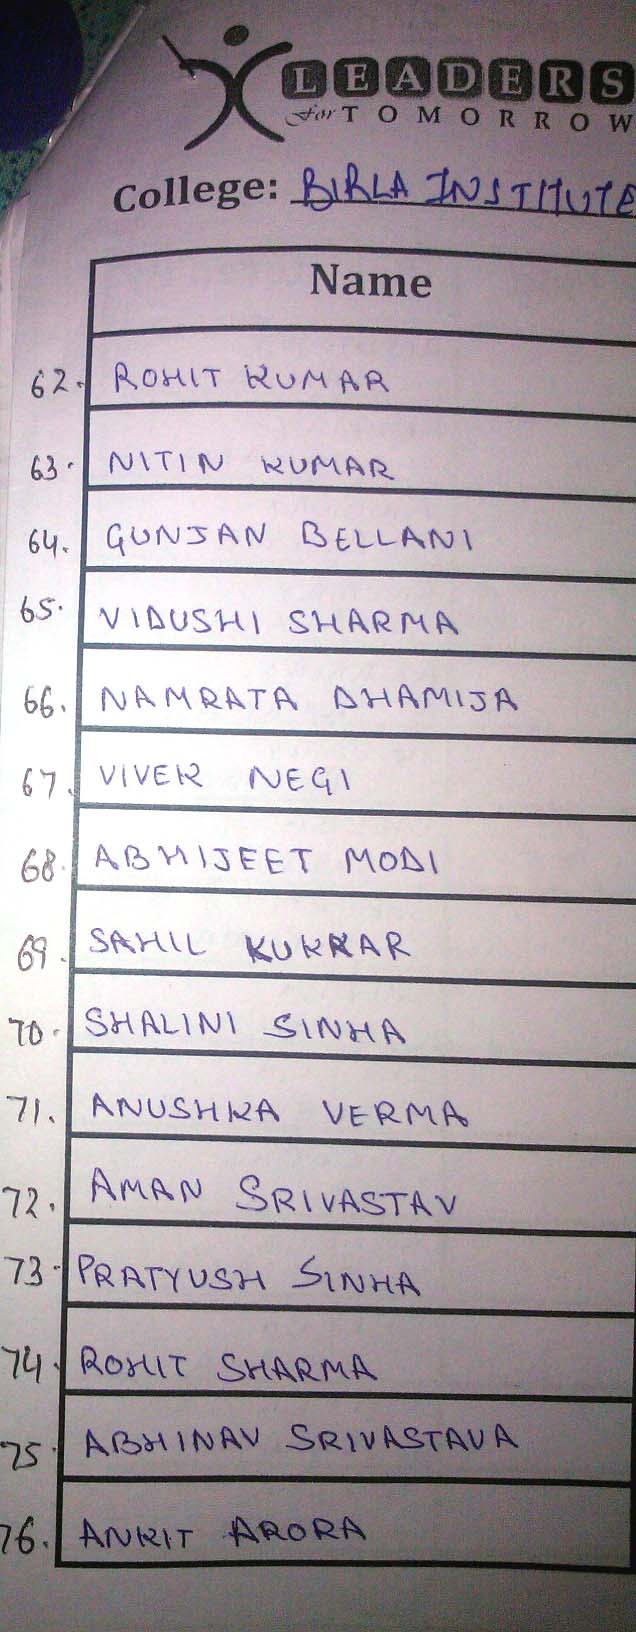 LEADERS
for TOMORROW
College: BIRLA INSTITUTE
Name
62. ROHIT KUMAR
63. NITIN KUMAR
64. GUNJAN BELLANI
65. VIDUSHI SHARMA
66. NAMRATA DHAMIJA
67. VIVEK NEGI
68. ABHIJEET MODI
69. SAHIL KUKKAR
70. SHALINI SINHA
71. ANUSHKA VERMA
72. AMAN SRIVASTAV
73. PRATYUSH SINHA
74. ROHIT SHARMA
75. ABHINAV SRIVASTAVA
76. ANKIT ARORA